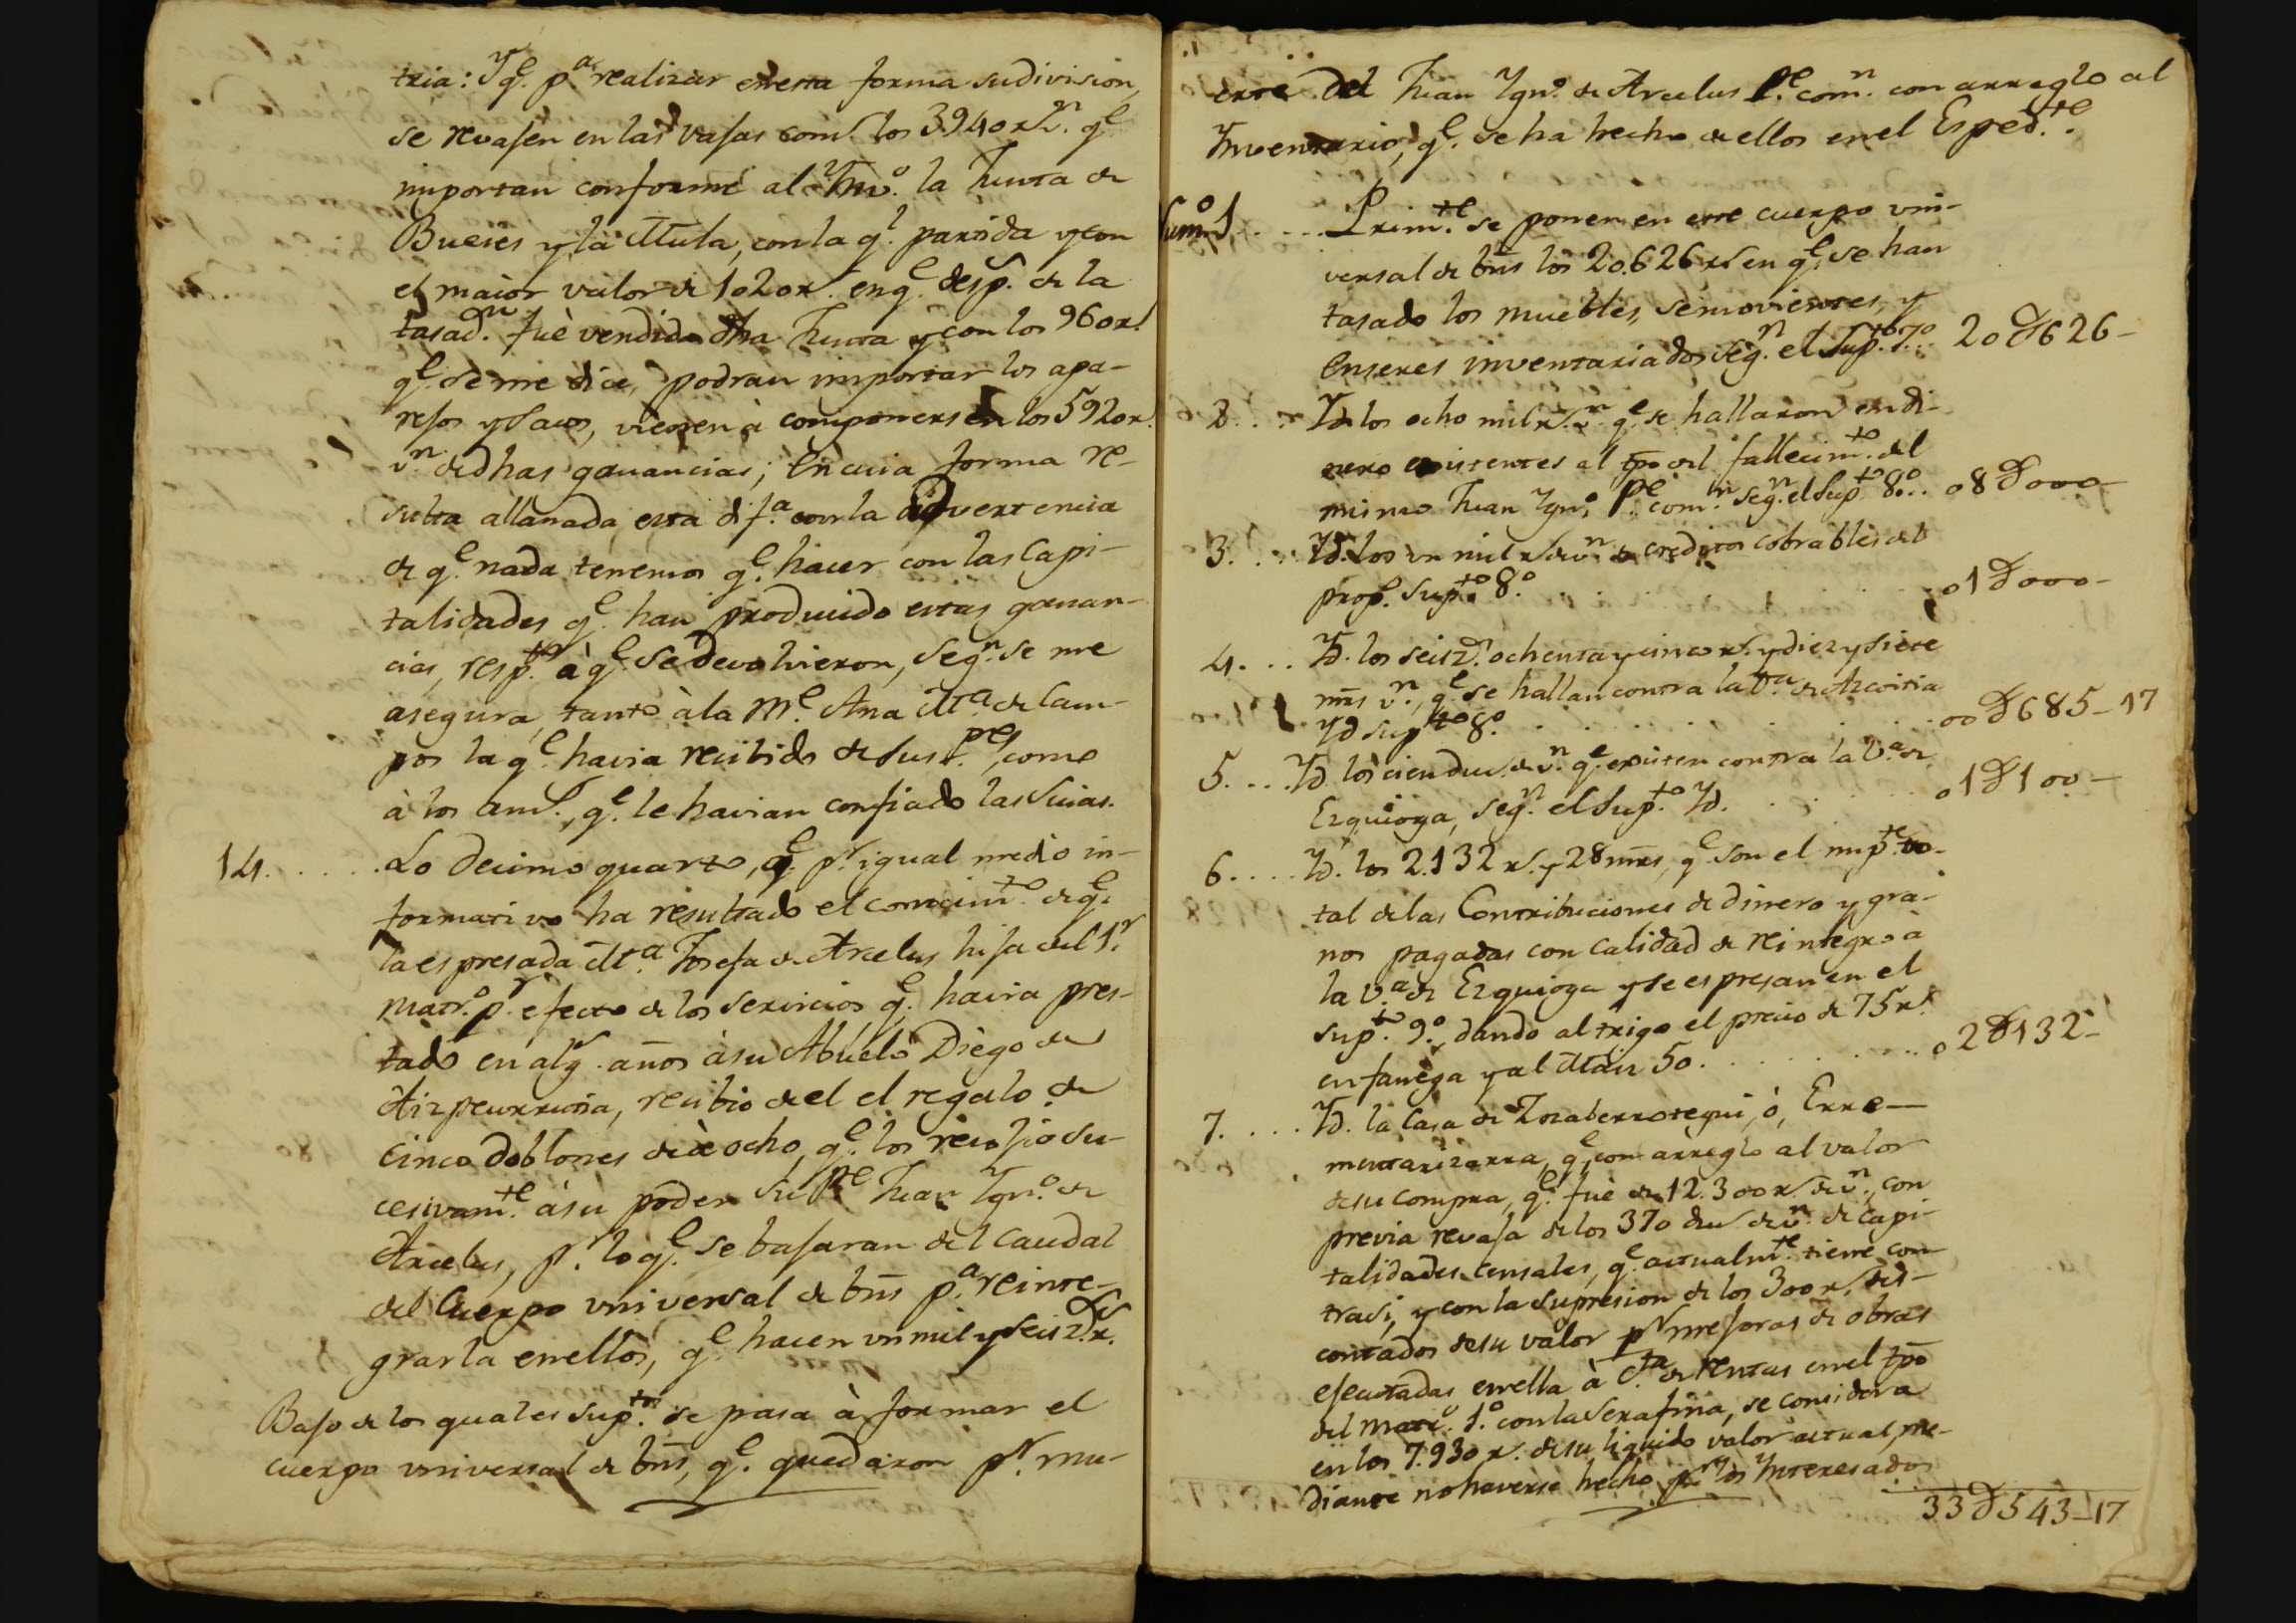 tria: Y q.e p.a realizar en esta forma su division,
se revajen en las vajas com.s los 3.940 r.s v.n q.e
importan conforme al Ynv.o la Junta de
Bueies y la Mula, con la q.l partida y con
el maior valor de 1020 r.s en q.e desp.s de la
tasad.n fuè vendida dha Junta y con los 960 r.s
q.e se me dice, podran importar los apa-
rejos y sacos, vienen à componerse los 5920 r.s
v.n de dhas ganancias; en cuia forma re-
sulta allanada esta dif.a con la advertencia
de q.e nada tenemos q.e hacer con las Capi-
talidades q.e han producido estas ganan-
cias, resp.to à q.e se devolvieron, seg.n se me
asegura, tanto à la M.e Ana M.a de Cam-
pos la q.e havia recibido de sus P.es, como
à los am.s, q.e le havian confiado las suias.
14. . . . . . Lo decimo quarto, q.e p.r igual medio in-
formativo ha resultado el conocim.to de q.e
la espresada M.a Josefa de Arcelus hija del 1.r
Matr.o p.r efecto de los servicios q.e havia pres-
tado en alg.s años à su Abuelo Diego de
Aizpeurrutia, recibio de el el regalo de
cinco doblones de à ocho, q.e los recojio su-
cesivam.te à su poder su P.e Juan Ygn.o de
Arcelus, p.r lo q.e se bajaran del Caudal
del Cuerpo universal de bns p.a reinte-
grarla en ellos, q.e hacen un mil y seis z.s r.s
Bajo de los quales sup.tos se pasa à formar el
cuerpo universal de bns, q.e quedaron p.r mu-
erte del Juan Ygn.o de Arcelus P.e com.n con arreglo al
Ynventario, q.e se ha hecho de ellos en el Esped.te
Num.o 1. . . . . Prim.te se ponen en este cuerpo uni-
versal de bns los 20.626 r.s en q.e se han
tasado los muebles, semovientes, y
enseres inventariados seg.n el Sup.to 7.o . . 20 D 626 -
2. . . . Yd. los ocho mil r.s v.n q.e se hallaron en di-
nero existentes al tpo del fallecim.to del
mismo Juan Ygn.o P.e com.n seg.n el Sup.to 8.o . . 08 D 000 -
3. . . . Yd. los un mil r.s de v.n de creditos cobrables del
prop.o Sup.to 8.o . . . . . . . . 01 D 000 -
4. . . Yd. los seis z.s ochenta y cinco r.s y diez y siete
mrs v.n, q.e se hallan contra la V.a de Azcoitia
Yd Sup.to 8.o . . . . . . . . 00 D 685 - 17
5. . . . Yd. los cien duc.s de v.n q.e existen contra la V.a de
Ezquioga, seg.n el Sup.to Yd. . . . . . . 01 D 100 -
6. . . . Yd. los 2.132 r.s y 28 mrs, q.e son el imp.te to-
tal de las Contribuciones de dinero y gra-
nos pagadas con calidad de reintegro à
la V.a de Ezquioga y se espresan en el
Sup.to 9.o, dando al trigo el precio de 75 r.s
en fanega y al Maiz 50. . . . . . . . 02 D 132 -
7. . . . . Yd. la Casa de Zozaberrotegui, ò, Erre-
mentarizarra, q.e con arreglo al valor
de su compra, q.e fuè de 12.300 r.s de v.n, con
previa revaja de los 370 duc.s de v.n de capi-
talidades censales, q.e actualm.te tiene con-
tra si, y con la supresion de los 300 r.s des-
contados de su valor p.r mejoras de obras
ejecutadas en ella à c.ta de rentas en el tpo
del Matr.o 1.o con la Serafina, se considera
en los 7.930 r.s de su liquido valor actual, me-
diante no haverse hecho p.r los Ynteresados
33 D 543 - 17